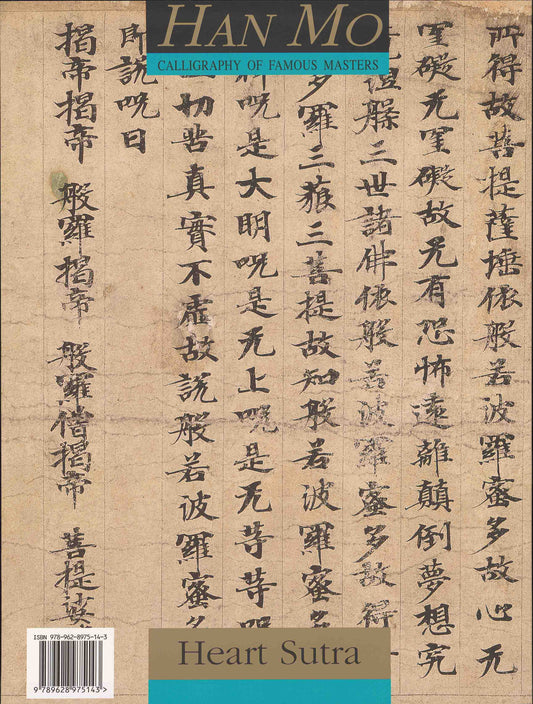 HAN MO
CALLIGRAPHY OF FAMOUS MASTERS
所得故菩提薩埵依般若波羅蜜多故心无
罣礙无罣礙故无有恐怖遠離顛倒夢想究
三世諸佛依般若波羅蜜多故得
多羅三藐三菩提故知般若波羅蜜多
呪是大明呪是无上呪是无等等呪
切苦真實不虛故說般若波羅蜜多
即說呪曰
揭帝揭帝 般羅揭帝 般羅僧揭帝 菩提娑
Heart Sutra
ISBN 978-962-8975-14-3
9 789628 975143 >